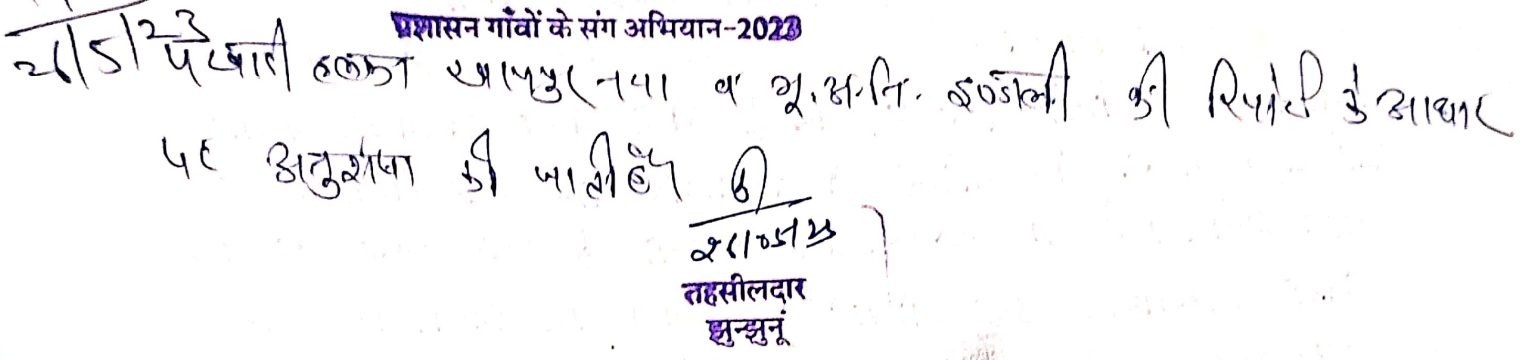 प्रशासन गाँवों के संग अभियान-2023
पटवारी हलका श्यामपुरा नया व भू.अ.नि. इण्डाली की रिपोर्ट के आधार
पर अनुशंषा की जाती है।
तहसीलदार
झुन्झुनूं